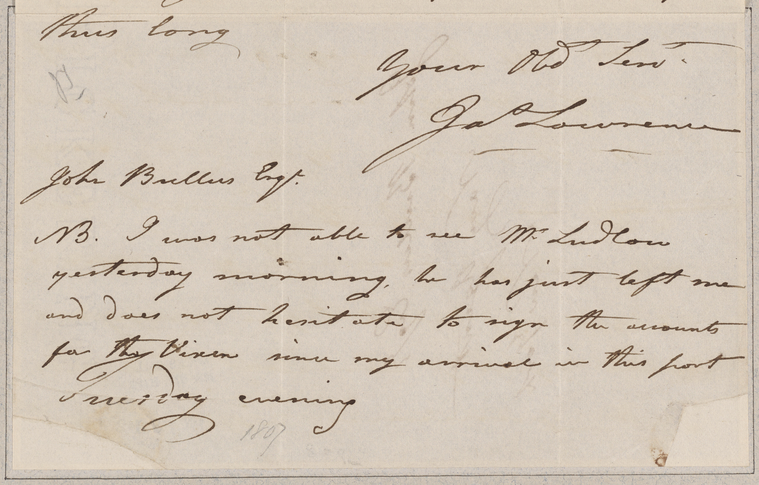 thus long
Your Obdt Servt
Jas Lawrence
John Bullus Esqr.
NB. I was not able to see Mr Ludlow
yesterday morning, he has just left me
and does not hesitate to sign the accounts
for the Vixen since my arrival in this port
Tuesday evening
1807